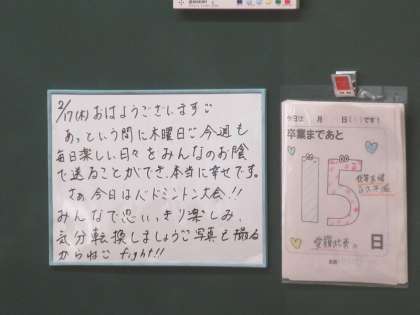 2/17(木)おはようございます。
あっという間に木曜日。今週も
毎日楽しい日々をみんなのお陰
で送ることができ、本当に幸せです。
さぁ、今日はバドミントン大会!!
みんなで思いっきり楽しみ、
気分転換しましょう。写真も撮る
からね。fight!!
今日は 月 日( )です!
卒業まであと
15
日